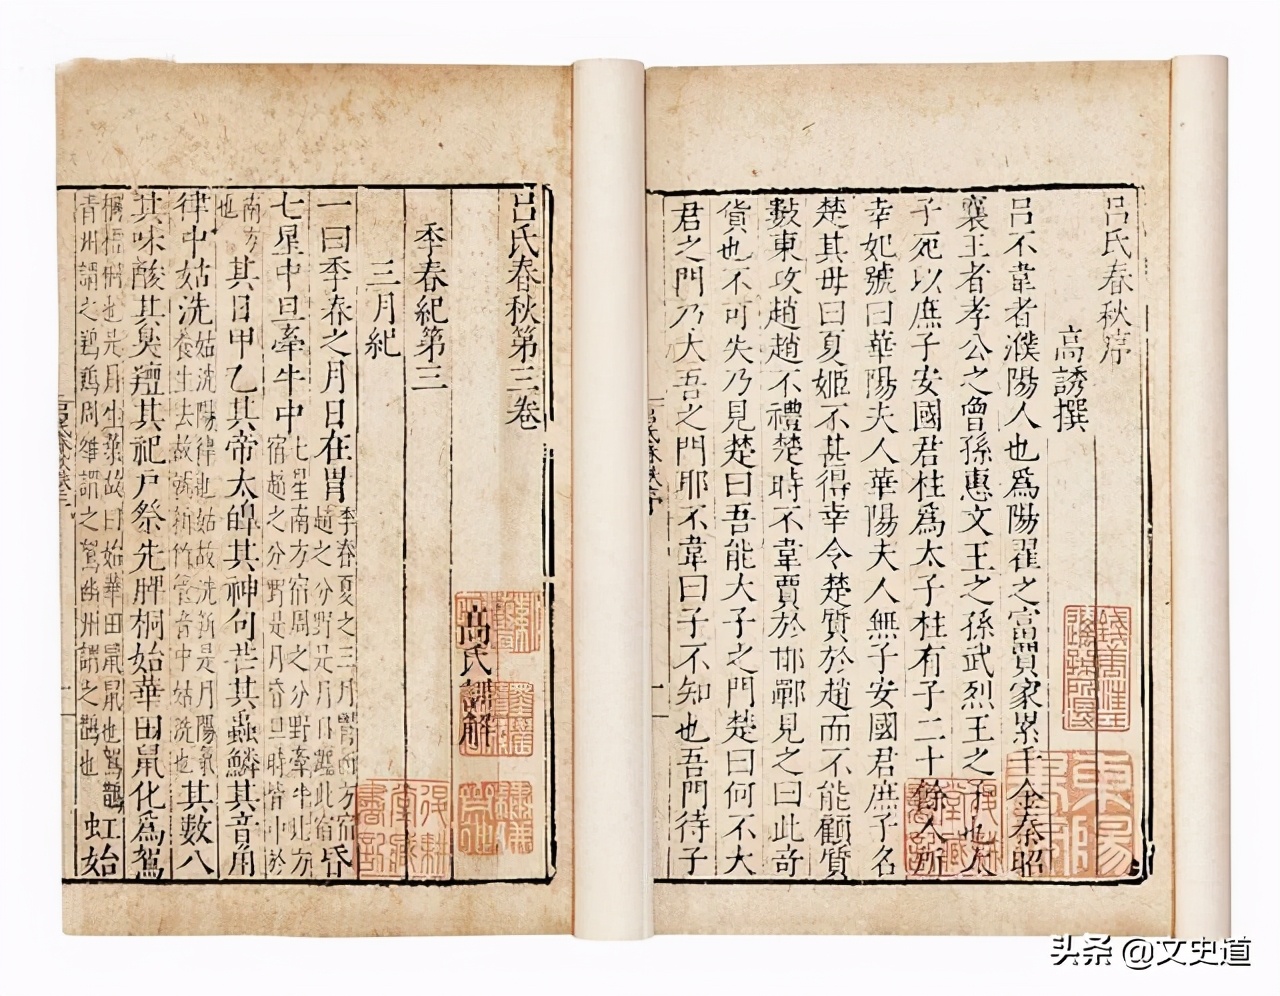 呂氏春秋序
高誘撰
呂不韋者濮陽人也爲陽翟之富賈家累千金秦昭
襄王者孝公之曾孫惠文王之孫武烈王之子也太
子死以庶子安國君柱爲太子柱有子二十餘人所
幸妃號曰華陽夫人華陽夫人無子安國君庶子名
楚其母曰夏姬不甚得幸令楚質於趙而不能顧質
數東攻趙趙不禮楚時不韋賈於邯鄲見之曰此奇
貨也不可失乃見楚曰吾能大子之門楚曰何不大
君之門乃大吾之門耶不韋曰子不知也吾門待子
呂氏春秋序
呂氏春秋第三卷
高氏訓解
季春紀第三
三月紀
一曰季春之月日在胃季春夏之三月胃西方宿趙之分野是月日躔此宿昏
七星中旦牽牛中七星南方宿周之分野牽牛北方宿越之分野是月昏旦時皆中於
南方也其日甲乙其帝太皥其神句芒其蟲鱗其音角
律中姑洗姑洗陽律也姑故洗新是月陽氣養生去故就新竹管音中姑洗也其數八
其味酸其臭羶其祀戶祭先脾桐始華田鼠化爲鴽
桐梧桐也是月生葉故曰始華田鼠也鴽鶉青州謂之鴾周雒謂之鴽幽州謂之鶕也虹始
頭条 @文史道